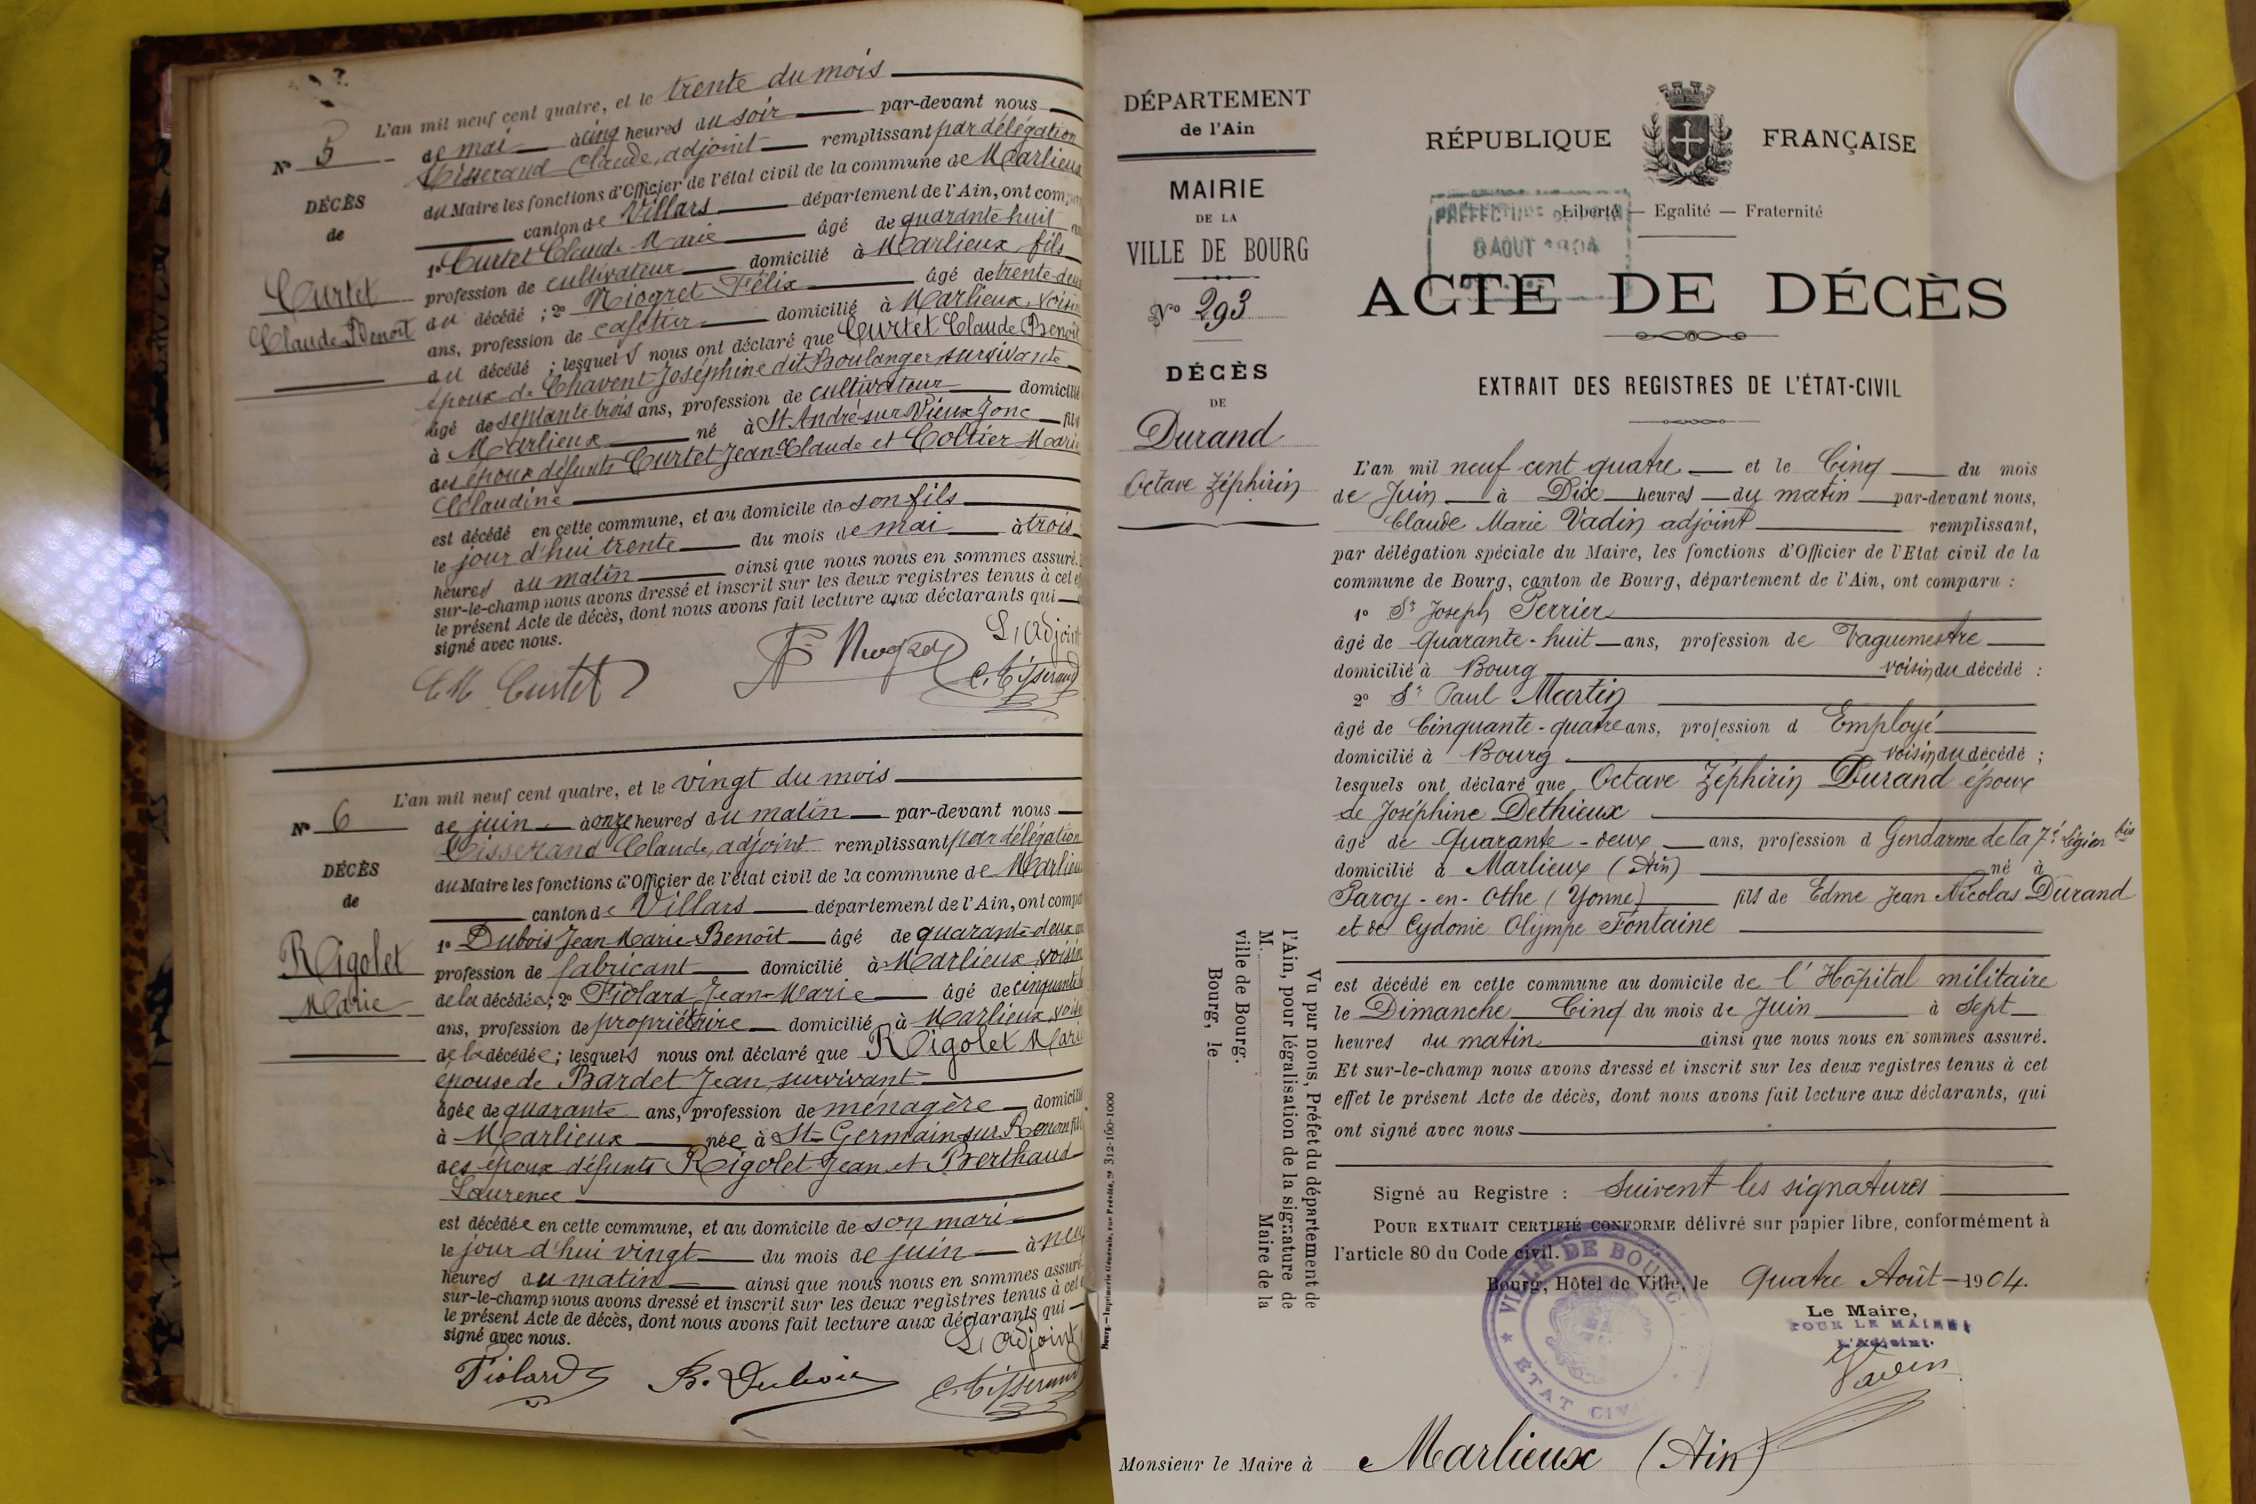 L'an mil neuf cent quatre, et le trente du mois
N° 5
de mai à cinq heures du soir par-devant nous
Tisserand Claude, adjoint remplissant par délégation
du Maire les fonctions d'Officier de l'état civil de la commune de Marlieux
canton de Villars département de l'Ain, ont comparu
DÉCÈS
de
Curtet
Claude Benoit
1° Curtet Claude Marie âgé de quarante huit
profession de cultivateur domicilié à Marlieux, fils
du décédé ; 2° Niogret Félix âgé de trente-deux
ans, profession de cafetier domicilié à Marlieux, voisin
du décédé ; lesquels nous ont déclaré que Curtet Claude Benoit
époux de Chavent Joséphine dit Boulanger survivante
âgé de septante trois ans, profession de cultivateur domicilié
à Marlieux né à St André sur Vieux Jonc fils
des époux défunts Curtet Jean-Claude et Coltier Marie
Claudine
est décédé en cette commune, et au domicile de son fils
le jour d'hui trente du mois de mai à trois
heures du matin ainsi que nous nous en sommes assuré.
sur-le-champ nous avons dressé et inscrit sur les deux registres tenus à cet
le présent Acte de décès, dont nous avons fait lecture aux déclarants qui
signé avec nous.
L'Adjoint
CM Curtet
C. Tisserand
L'an mil neuf cent quatre, et le vingt du mois
N° 6
de juin à onze heures du matin par-devant nous
Tisserand Claude, adjoint remplissant par délégation
du Maire les fonctions d'Officier de l'état civil de la commune de Marlieux
canton de Villars département de l'Ain, ont comparu
DÉCÈS
de
Rigolet
Marie
1° Dubois Jean Marie Benoît âgé de quarante-deux
profession de fabricant domicilié à Marlieux, voisin
de la décédée ; 2° Fiolard Jean-Marie âgé de cinquante
ans, profession de propriétaire domicilié à Marlieux, voisin
de la décédée ; lesquels nous ont déclaré que Rigolet Marie
épouse de Bardet Jean, survivant
âgée de quarante ans, profession de ménagère domiciliée
à Marlieux née à St Germain sur Renom
des époux défunts Rigolet Jean et Berthaud
Laurence
est décédée en cette commune, et au domicile de son mari
le jour d'hui vingt du mois de juin à neuf
heures du matin ainsi que nous nous en sommes assuré.
sur-le-champ nous avons dressé et inscrit sur les deux registres tenus à cet
le présent Acte de décès, dont nous avons fait lecture aux déclarants qui
signé avec nous.
L'Adjoint
Fiolard B. Dubois C. Tisserand
DÉPARTEMENT
de l'Ain
MAIRIE
DE LA
VILLE DE BOURG
N° 293
DÉCÈS
DE
Durand
Octave Zéphirin
Vu par nous, Préfet du département de
l'Ain, pour légalisation de la signature de
M. Maire de la
ville de Bourg.
Bourg, le
RÉPUBLIQUE FRANÇAISE
Liberté — Egalité — Fraternité
PRÉFECTURE
8 AOUT 1904
ACTE DE DÉCÈS
EXTRAIT DES REGISTRES DE L'ÉTAT-CIVIL
L'an mil neuf cent quatre et le Cinq du mois
de Juin à Dix heures du matin par-devant nous,
Claude Marie Vadin adjoint remplissant,
par délégation spéciale du Maire, les fonctions d'Officier de l'Etat civil de la
commune de Bourg, canton de Bourg, département de l'Ain, ont comparu :
1° Sr Joseph Perrier
âgé de quarante-huit ans, profession de Vaguemestre
domicilié à Bourg voisin du décédé :
2° Sr Paul Martin
âgé de Cinquante-quatre ans, profession d Employé
domicilié à Bourg voisin du décédé ;
lesquels ont déclaré que Octave Zéphirin Durand époux
de Joséphine Dethieux
âgé de Quarante-deux ans, profession d Gendarme de la 7e Légion bis
domicilié à Marlieux (Ain) né à
Paroy-en-Othe (Yonne) fils de Edme Jean Nicolas Durand
et de Cydonie Olympe Fontaine
est décédé en cette commune au domicile de l'Hôpital militaire
le Dimanche Cinq du mois de Juin à Sept
heures du matin ainsi que nous nous en sommes assuré.
Et sur-le-champ nous avons dressé et inscrit sur les deux registres tenus à cet
effet le présent Acte de décès, dont nous avons fait lecture aux déclarants, qui
ont signé avec nous
Signé au Registre : Suivent les signatures
POUR EXTRAIT CERTIFIÉ CONFORME délivré sur papier libre, conformément à
l'article 80 du Code civil.
Bourg, Hôtel de Ville, le quatre Août 1904.
Le Maire,
POUR LE MAIRE
L'Adjoint.
Vadin
VILLE DE BOURG
ÉTAT CIVIL
Monsieur le Maire à Marlieux (Ain)